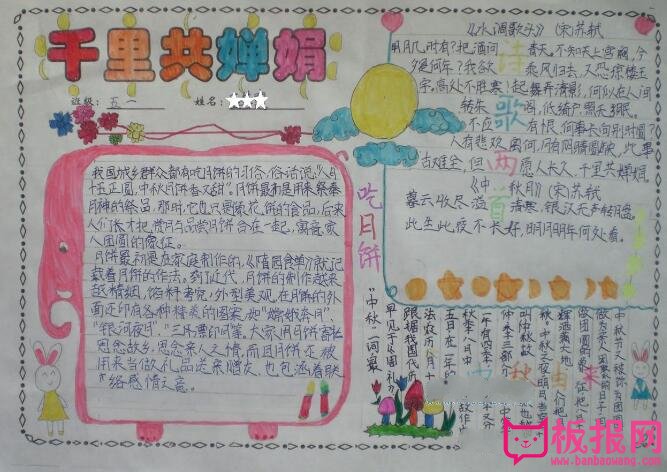 千里共婵娟
班级：五一 姓名：
我国城乡群众都有吃月饼的习俗，俗话说："八月
十五月正圆，中秋月饼香又甜"。月饼最初是用来祭奉
月神的祭品，那时，它也只是像菱花饼的食品，后来
人们才把赏月与品尝月饼合在一起，寓意家
人团圆的象征。
月饼最初是在家庭制作的，《随园食单》就记
载着月饼的作法。到了近代，月饼的制作越来
越精细，馅料考究，外型美观，在月饼的外
面还印有各种精美的图案，如"嫦娥奔月"、
"银河夜月"、"三潭印月"等。大家用月饼寄托
思念故乡，思念亲人之情，而且月饼还被
用来当做礼品送亲赠友，也包涵着联
络感情之意。
吃月饼
诗歌两首
《水调歌头》(宋)苏轼
明月几时有？把酒问青天，不知天上宫阙，今
夕是何年？我欲乘风归去，又恐琼楼玉
宇，高处不胜寒！起舞弄清影，何似在人间
转朱阁，低绮户，照无眠。
不应有恨，何事长向别时圆？
人有悲欢离合，月有阴晴圆缺，此事
古难全，但愿人长久，千里共婵娟。
《中秋月》(宋)苏轼
暮云收尽溢清寒，银汉无声转玉盘，
此生此夜不长好，明月明年何处看。
中秋由来
中秋节又被称为团圆
叫中秋
"中秋"一词最
早见于《周礼
板报网
www.banbaowang.com